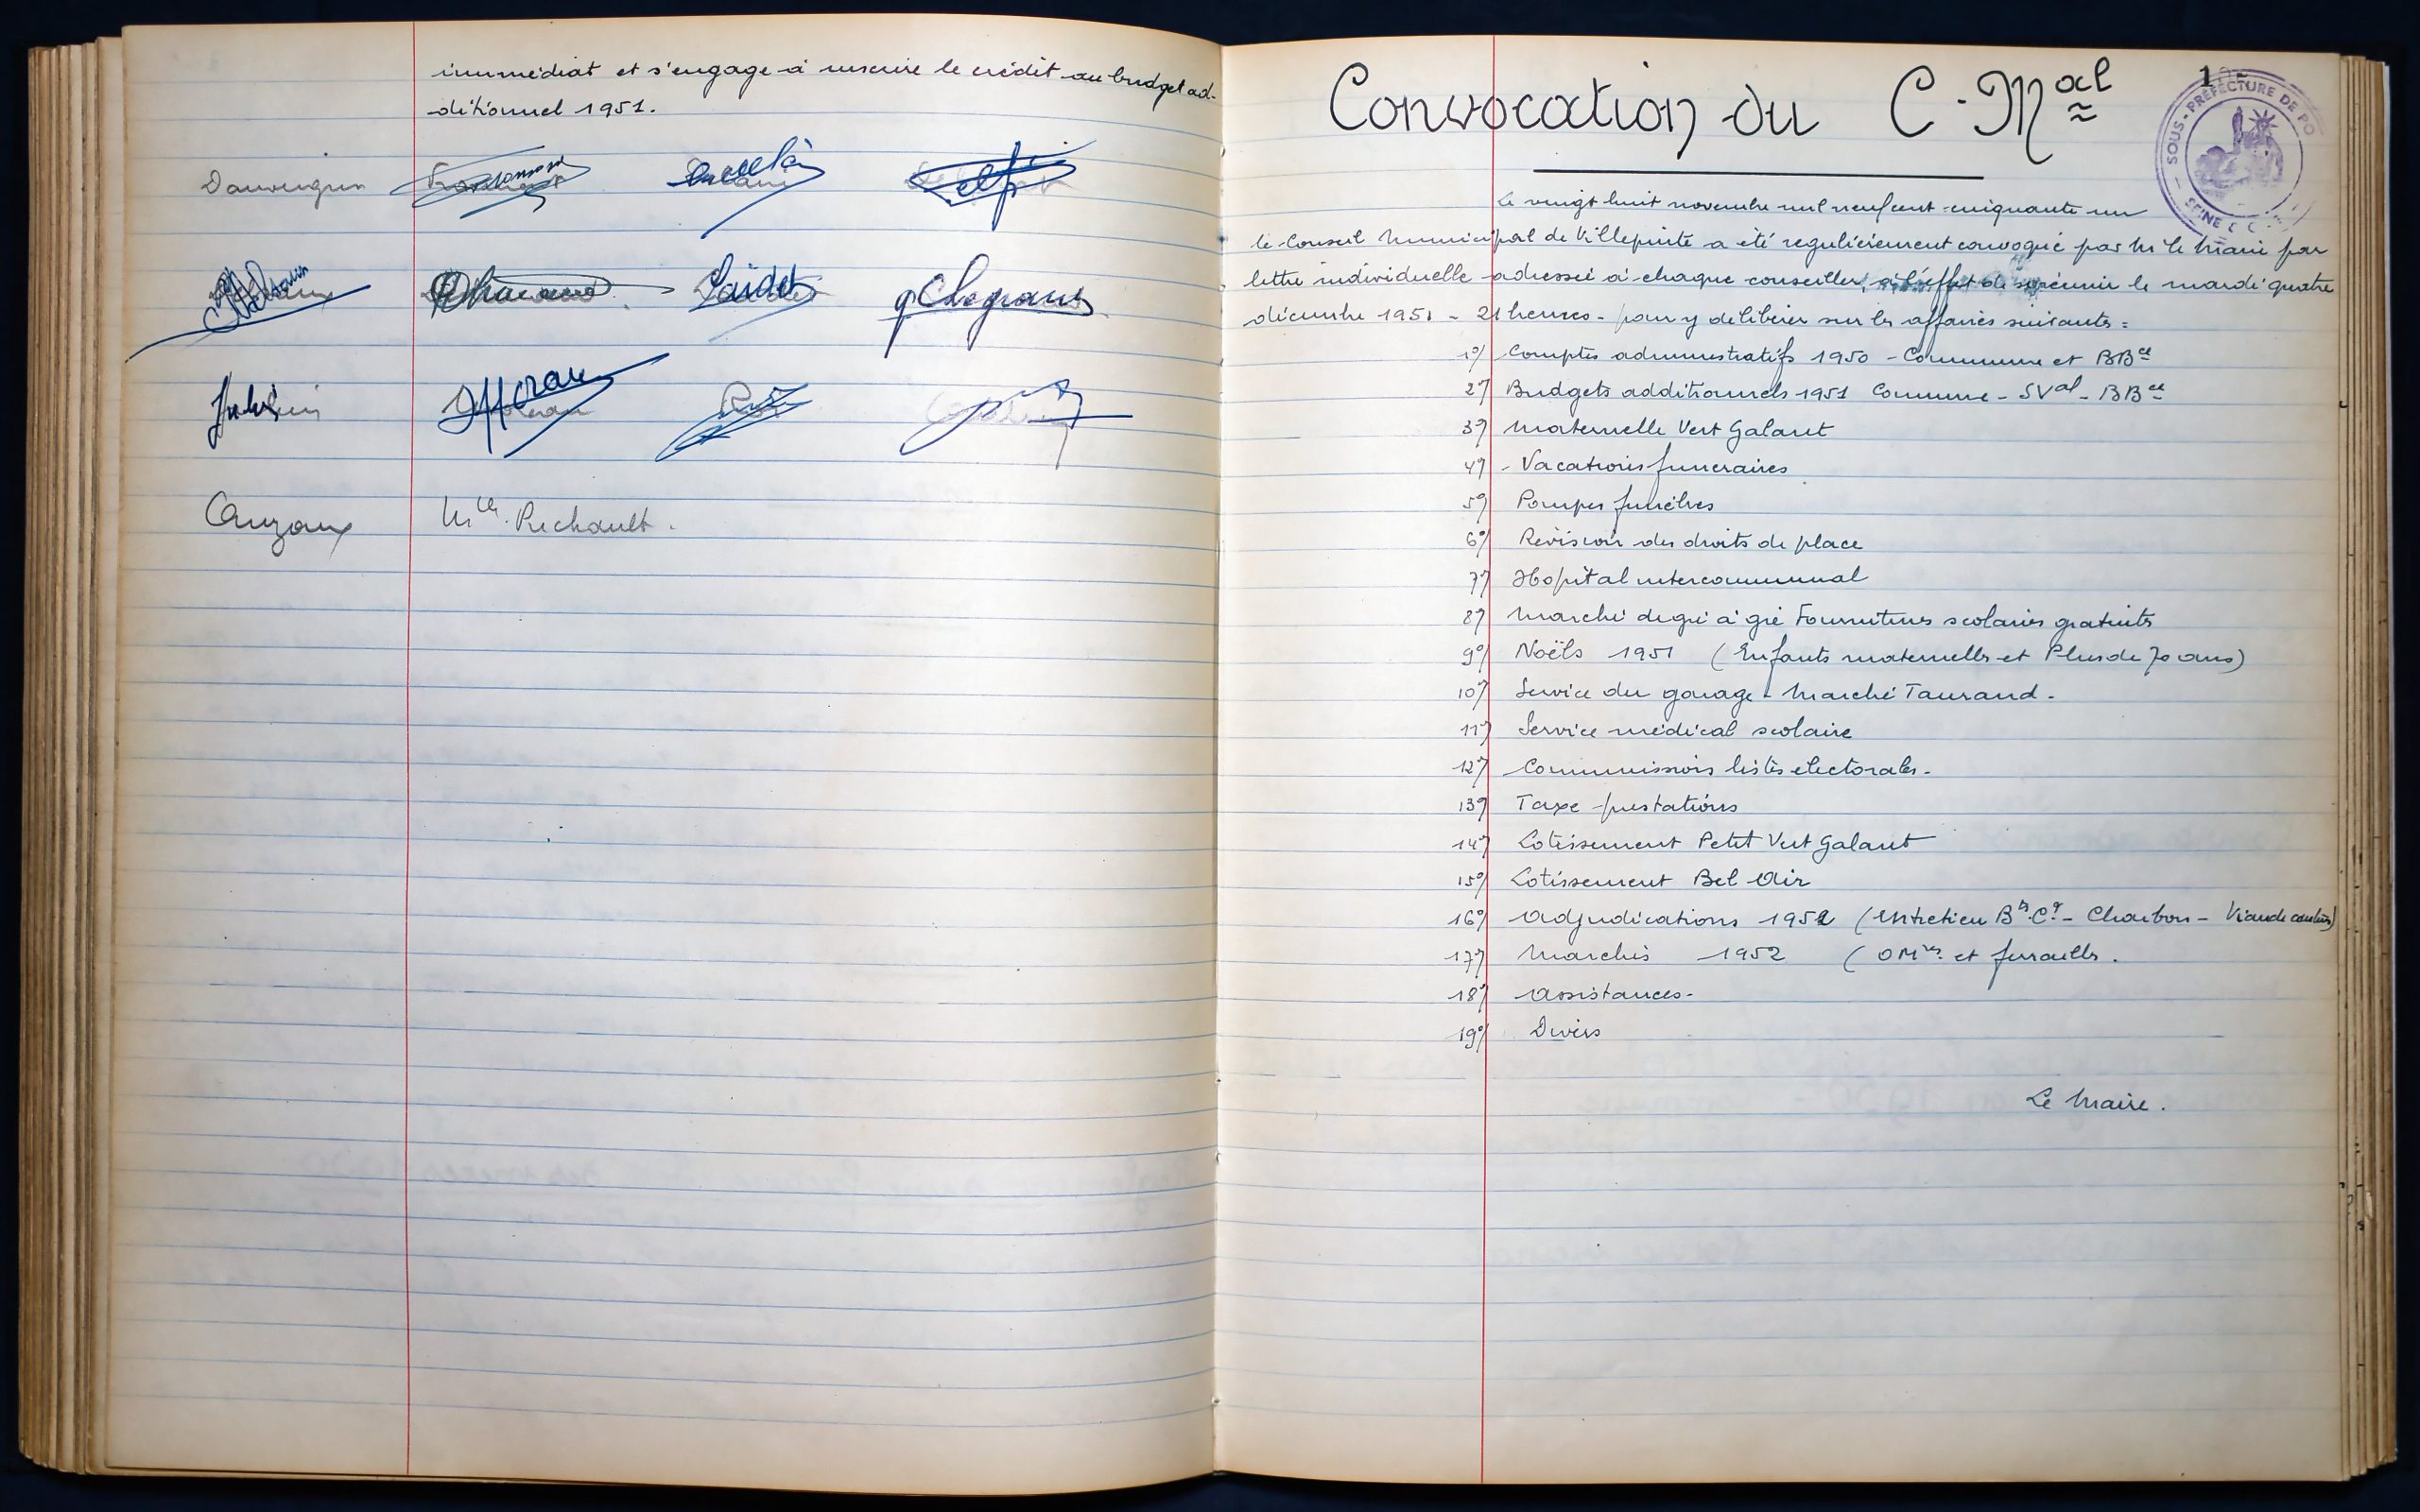 immédiat et s'engage à inscrire le crédit au budget ad-
ditionnel 1951.
Dauvergne
Saidet
Legrand
Julien
Moreau
Roy
Cuzoux
Mlle Richault.
Convocation du C. Mal
1
SOUS-PRÉFECTURE DE PO
SEINE
Le vingt huit novembre mil neuf cent cinquante un
le Conseil Municipal de Villepinte a été regulièrement convoqué par Mr le Maire par
lettre individuelle adressée à chaque conseiller, à l'effet de se réunir le mardi quatre
décembre 1951 - 21 heures - pour y délibérer sur les affaires suivantes =
1°/ Comptes administratifs 1950 - Commune et BBce
2°/ Budgets additionnels 1951 Commune - SVal - BBce
3°/ Maternelle Vert Galant
4°/ - Vacations funeraires
5°/ Pompes funèbres
6°/ Révision des droits de place
7°/ Hopital intercommunal
8°/ Marché de gré à gré Fournitures scolaires gratuites
9°/ Noëls 1951 (Enfants maternelles et Plus de 70 ans)
10°/ Service du gavage - Marché Taurand -
11°/ Service médical scolaire
12°/ Commissions listes electorales -
13°/ Taxe prestations
14°/ Lotissement Petit Vert Galant
15°/ Lotissement Bel Air
16°/ Adjudications 1952 (Entretien Bts Cx - Charbon - Viande cantines)
17°/ Marchés 1952 (OMres et ferrailles.
18°/ Assistances -
19°/ Divers
Le Maire.